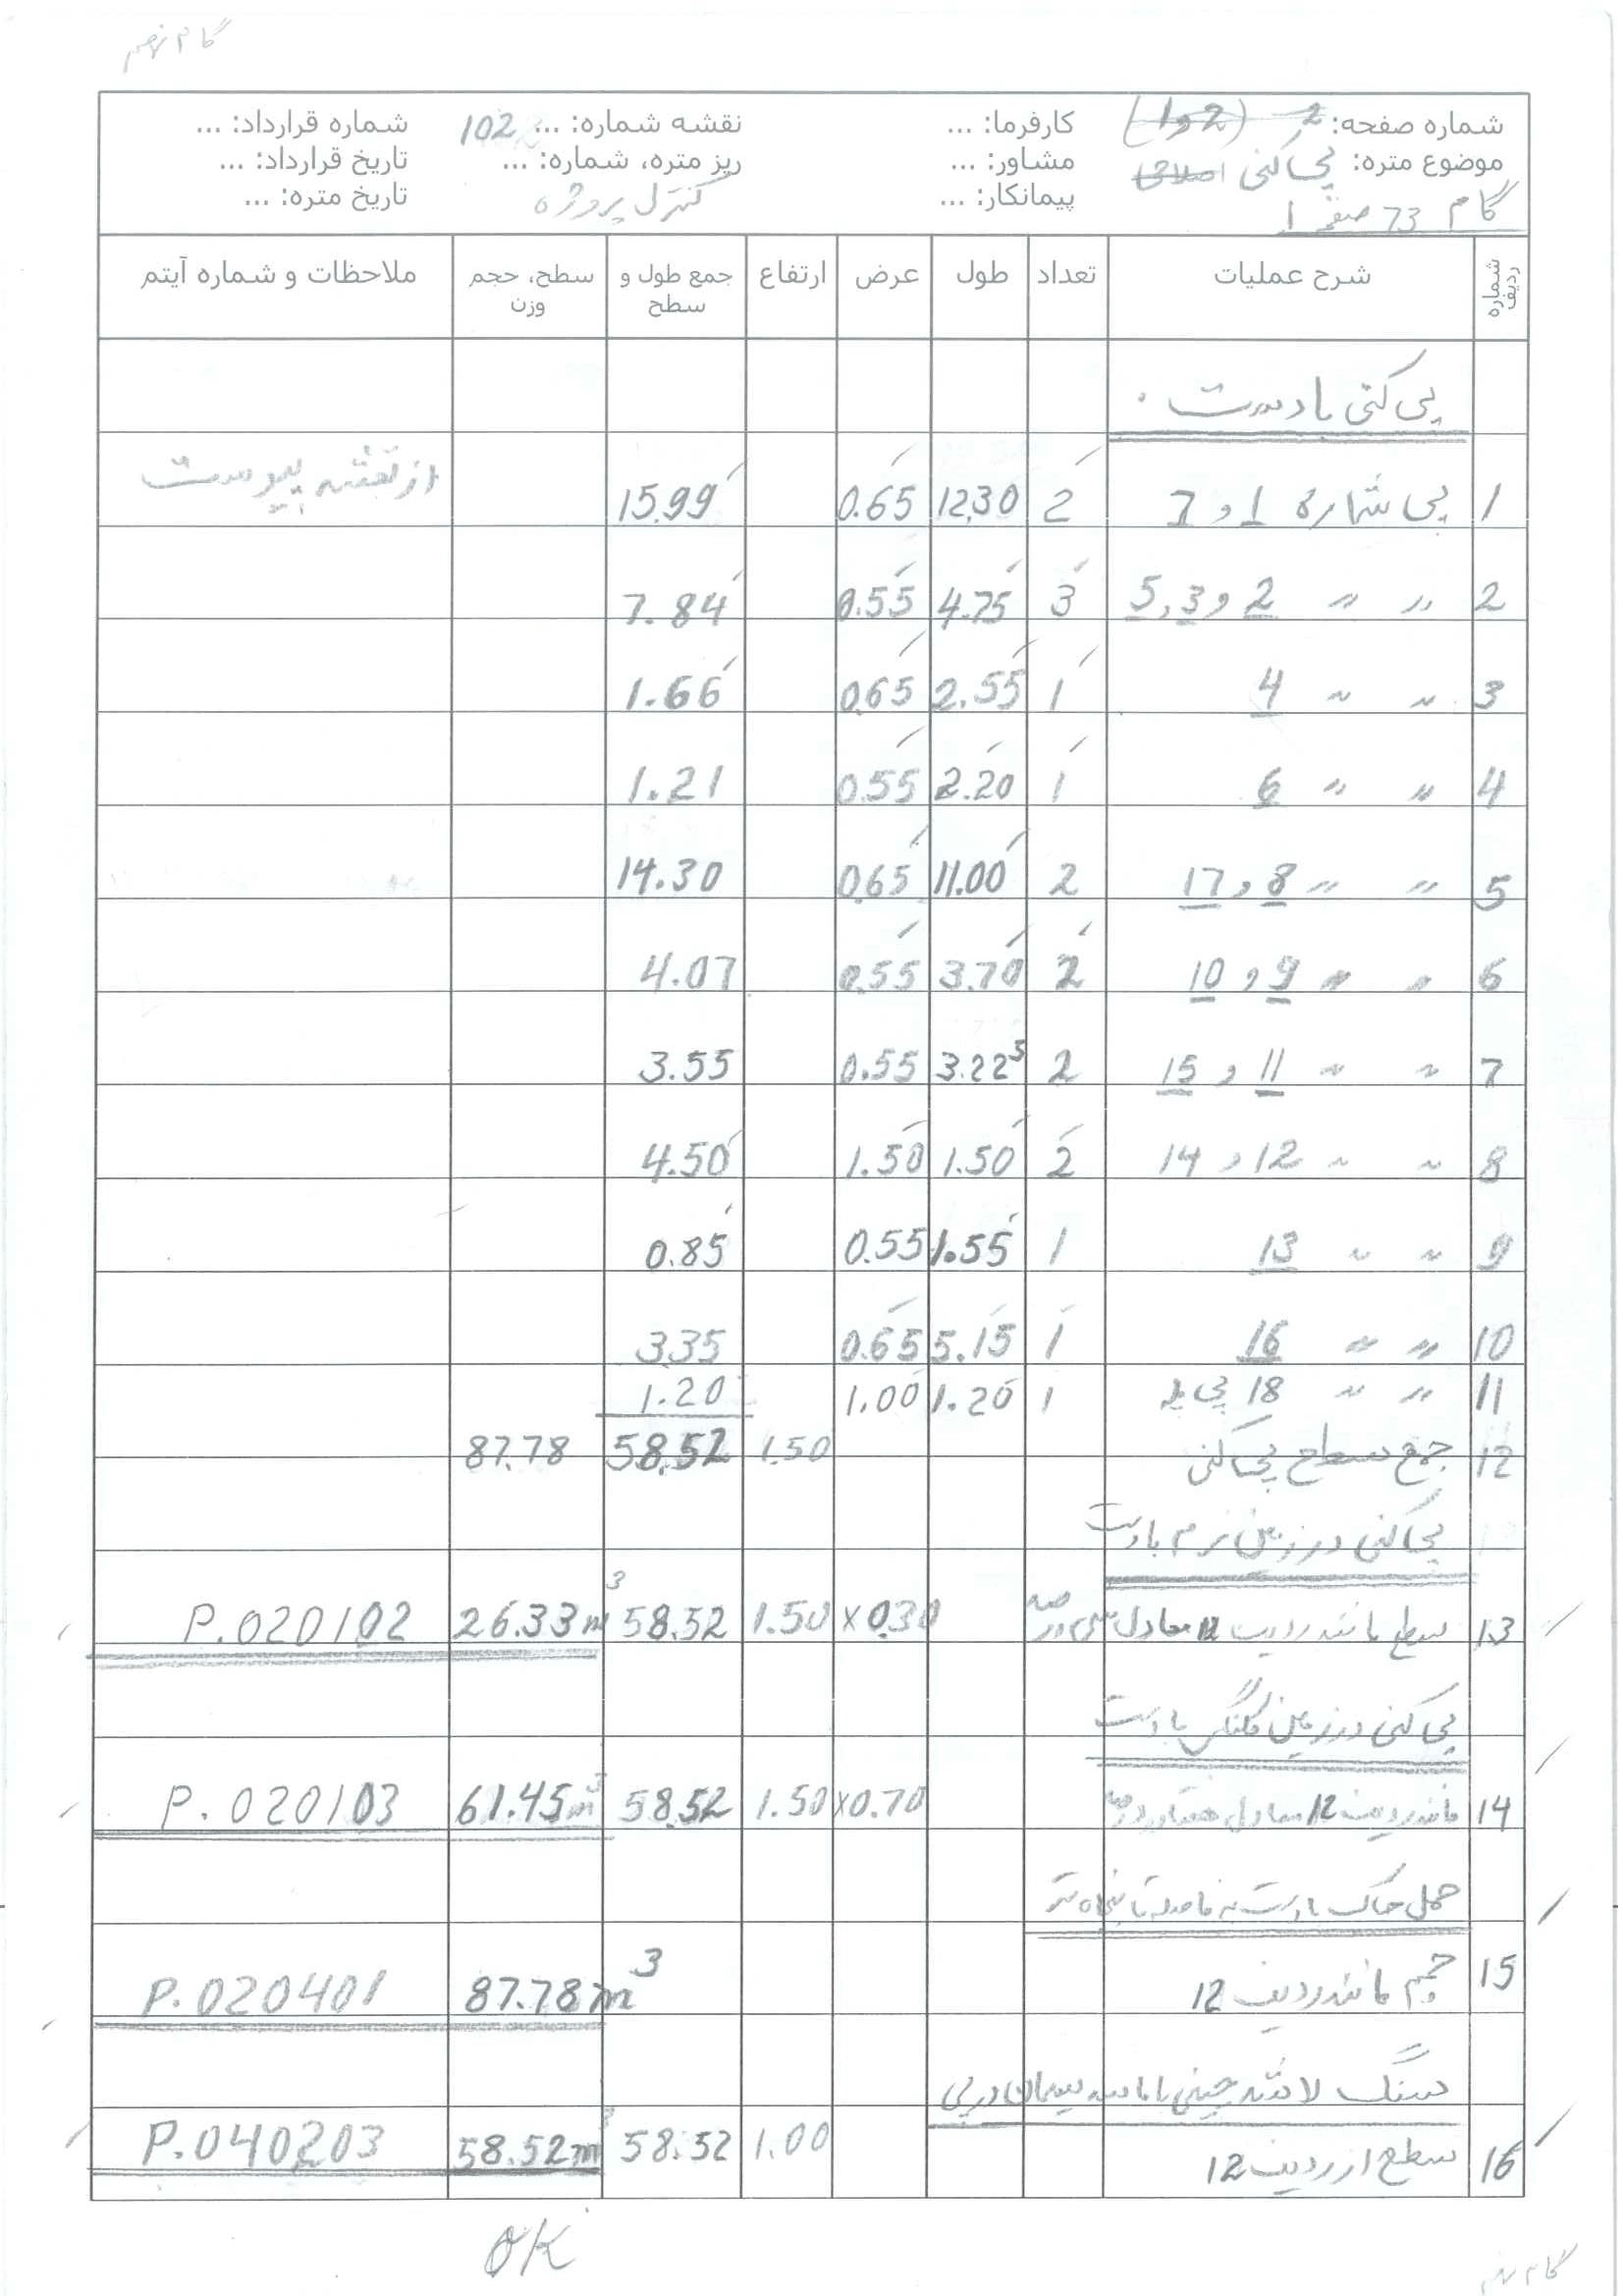 گام نهم
شماره صفحه: 2 (2و1) کارفرما: ... نقشه شماره: ... 102 شماره قرارداد: ...
موضوع متره: پی کنی اصلاحی مشاور: ... ریز متره، شماره: ... تاریخ قرارداد: ...
گام 73 صفر 1 پیمانکار: ... کنترل پروژه تاریخ متره: ...
شماره ردیف شرح عملیات تعداد طول عرض ارتفاع جمع طول و سطح سطح، حجم وزن ملاحظات و شماره آیتم
پی کنی با دست .
1 پی شماره 1 و 7 2 12.30 0.65 15.99 از نقشه پیوست
2 " " 2 و 3 , 5 3 4.75 0.55 7.84
3 " " 4 1 2.55 0.65 1.66
4 " " 6 1 2.20 0.55 1.21
5 " " 8 و 17 2 11.00 0.65 14.30
6 " " 9 و 10 2 3.70 0.55 4.07
7 " " 11 و 15 2 3.225 0.55 3.55
8 " " 12 و 14 2 1.50 1.50 4.50
9 " " 13 1 1.55 0.55 0.85
10 " " 16 1 5.15 0.65 3.35
11 " " 18 پی پله 1 1.20 1.00 1.20
12 جمع سطح پی کنی 1.50 58.52 87.78
پی کنی در زمین نرم با دست
13 سطح مانند ردیف 12 معادل سی درصد 1.50 × 0.30 58.52 26.33 m3 P.020102
پی کنی در زمین کلنگی با دست
14 مانند ردیف 12 معادل هفتاد درصد 1.50 × 0.70 58.52 61.45 m3 P.020103
حمل خاک با دست به فاصله تا پنجاه متر
15 حجم مانند ردیف 12 87.78 m3 P.020401
سنگ لاشه چینی با ماسه سیمان در پی
16 سطح از ردیف 12 1.00 58.52 58.52 m3 P.040203
OK
گام نهم